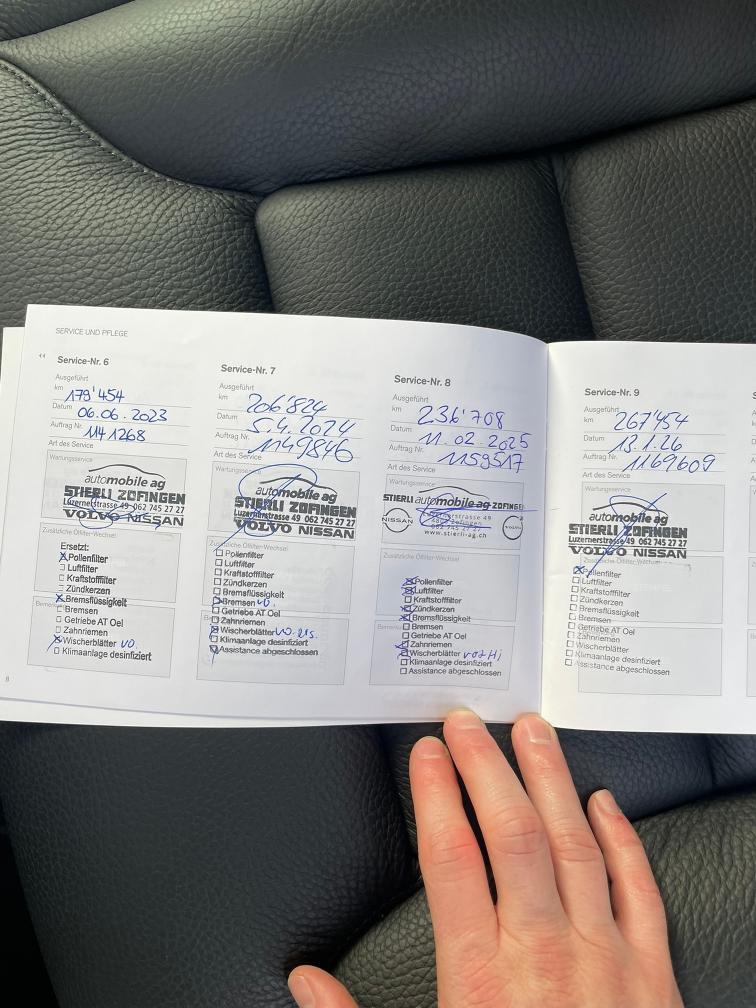 SERVICE UND PFLEGE
Service-Nr. 6
Ausgeführt
km 179'454
Datum 06.06.2023
Auftrag Nr. 1141268
Art des Service
Wartungsservice
automobile ag
STIERLI ZOFINGEN
Luzernerstrasse 49 062 745 27 27
VOLVO NISSAN
Zusätzliche Ölfilter-Wechsel
Ersetzt:
Pollenfilter
Luftfilter
Kraftstofffilter
Zündkerzen
Bremsflüssigkeit
Bremsen
Getriebe AT Oel
Zahnriemen
Wischerblätter vo.
Klimaanlage desinfiziert
8
Service-Nr. 7
Ausgeführt
km 206'824
Datum 5.4.2024
Auftrag Nr. 1149846
Art des Service
Wartungsservice
automobile ag
STIERLI ZOFINGEN
Luzernerstrasse 49 062 745 27 27
VOLVO NISSAN
Zusätzliche Ölfilter-Wechsel
Pollenfilter
Luftfilter
Kraftstofffilter
Zündkerzen
Bremsflüssigkeit
Bremsen vo.
Getriebe AT Oel
Zahnriemen
Wischerblätter
Klimaanlage desinfiziert
Assistance abgeschlossen
Service-Nr. 8
Ausgeführt
km 236'708
Datum 11.02.2025
Auftrag Nr. 1159517
Art des Service
Wartungsservice
STIERLI automobile ag ZOFINGEN
NISSAN
Luzernerstrasse 49
4800 Zofingen
062 745 27 27
www.stierli-ag.ch
Zusätzliche Ölfilter-Wechsel
Pollenfilter
Luftfilter
Kraftstofffilter
Zündkerzen
Bremsflüssigkeit
Bremsen
Getriebe AT Oel
Zahnriemen
Wischerblätter vo+Hi
Klimaanlage desinfiziert
Assistance abgeschlossen
Service-Nr. 9
Ausgeführt
km 267'454
Datum 13.1.26
Auftrag Nr. 1169609
Art des Service
Wartungsservice
automobile ag
STIERLI ZOFINGEN
Luzernerstrasse 49 062 745 27 27
VOLVO NISSAN
Zusätzliche Ölfilter-Wechsel
Pollenfilter
Luftfilter
Kraftstofffilter
Zündkerzen
Bremsflüssigkeit
Bremsen
Getriebe AT Oel
Zahnriemen
Wischerblätter
Klimaanlage desinfiziert
Assistance abgeschlossen